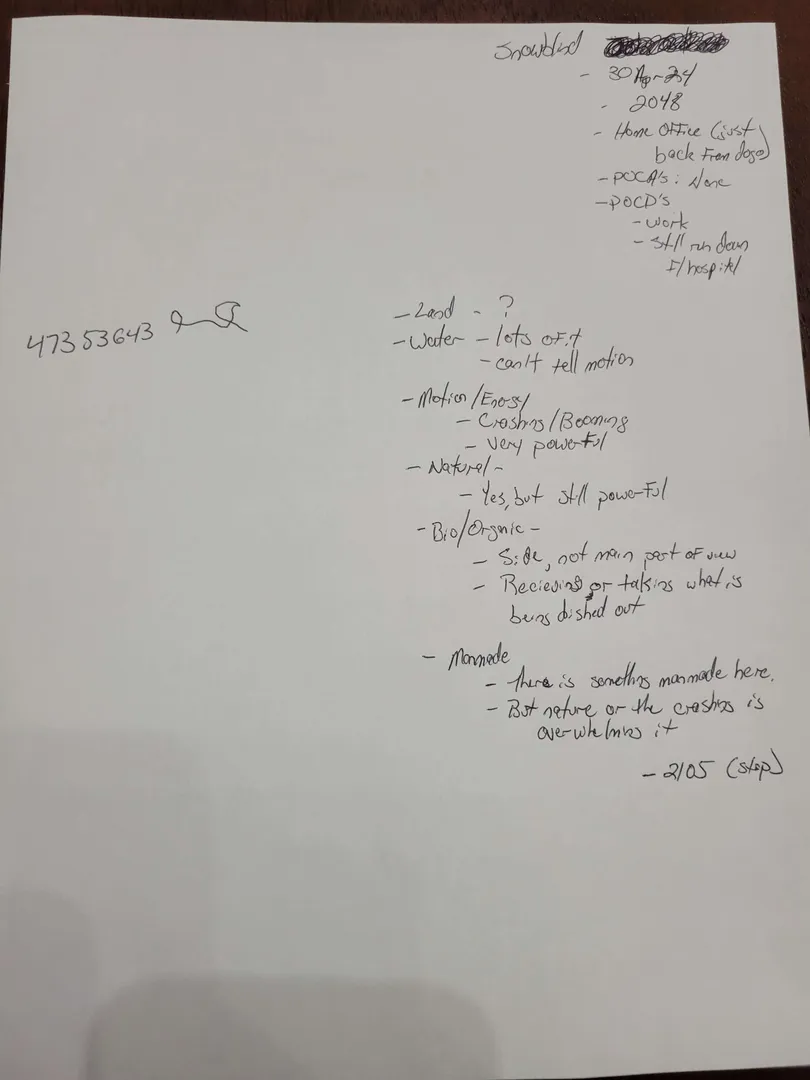 Snowblind
- 30 Apr 24
- 2048
- Home Office (just
back from dogs)
- POCA's: None
- POCD's
- work
- still run down
F/hospital
47353643
- Land - ?
- Water - lots of it
- can't tell motion
- Motion/Energy
- Crashing/Booming
- Very powerful
- Natural -
- Yes, but still powerful
- Bio/Organic -
- Side, not main part of view
- Recieving or taking what is
being dished out
- Manmade
- there is something manmade here.
- But nature or the crashing is
overwhelming it
- 2105 (stop)